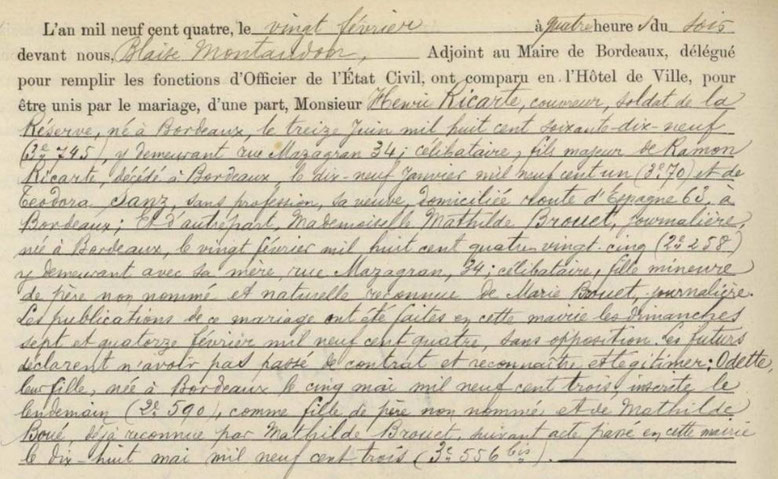 L'an mil neuf cent quatre, le vingt février à quatre heures du soir
devant nous, Blaise Montaudon, Adjoint au Maire de Bordeaux, délégué
pour remplir les fonctions d'Officier de l'État Civil, ont comparu en l'Hôtel de Ville, pour
être unis par le mariage, d'une part, Monsieur Henri Ricarte, couvreur, soldat de la
Réserve, né à Bordeaux, le treize Juin mil huit cent soixante-dix-neuf
(3e 745), y demeurant rue Mazagran 34; célibataire, fils majeur de Ramon
Ricarte, décédé à Bordeaux, le dix-neuf Janvier mil neuf cent un (3e 70) et de
Teodora Sanz, sans profession, sa veuve, domiciliée route d'Espagne 63, à
Bordeaux; Et d'autre part, Mademoiselle Mathilde Brouet, journalière,
née à Bordeaux, le vingt février mil huit cent quatre vingt-cinq (2e 258)
y demeurant avec sa mère rue Mazagran, 34; célibataire, fille mineure
de père non nommé et naturelle reconnue de Marie Brouet, journalière.
Les publications de ce mariage ont été faites en cette mairie les dimanches
sept et quatorze février mil neuf cent quatre, sans opposition. Les futurs
déclarent n'avoir pas passé de contrat et reconnaître et légitimer: Odette,
leur fille, née à Bordeaux le cinq mai mil neuf cent trois, inscrite le
lendemain (2e 590), comme fille de père non nommé et de Mathilde
Boué, déjà reconnue par Mathilde Brouet, suivant acte passé en cette mairie
le dix-huit mai mil neuf cent trois (3e 556 bis).